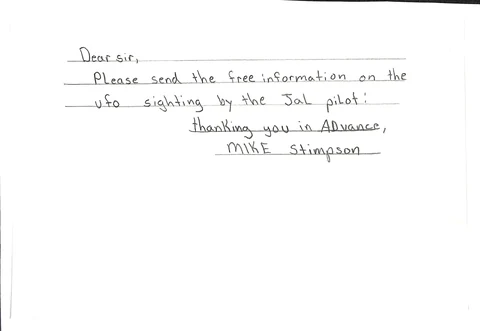 Dear sir,
Please send the free information on the
ufo sighting by the Jal pilot:
thanking you in ADvance,
MIKE Stimpson